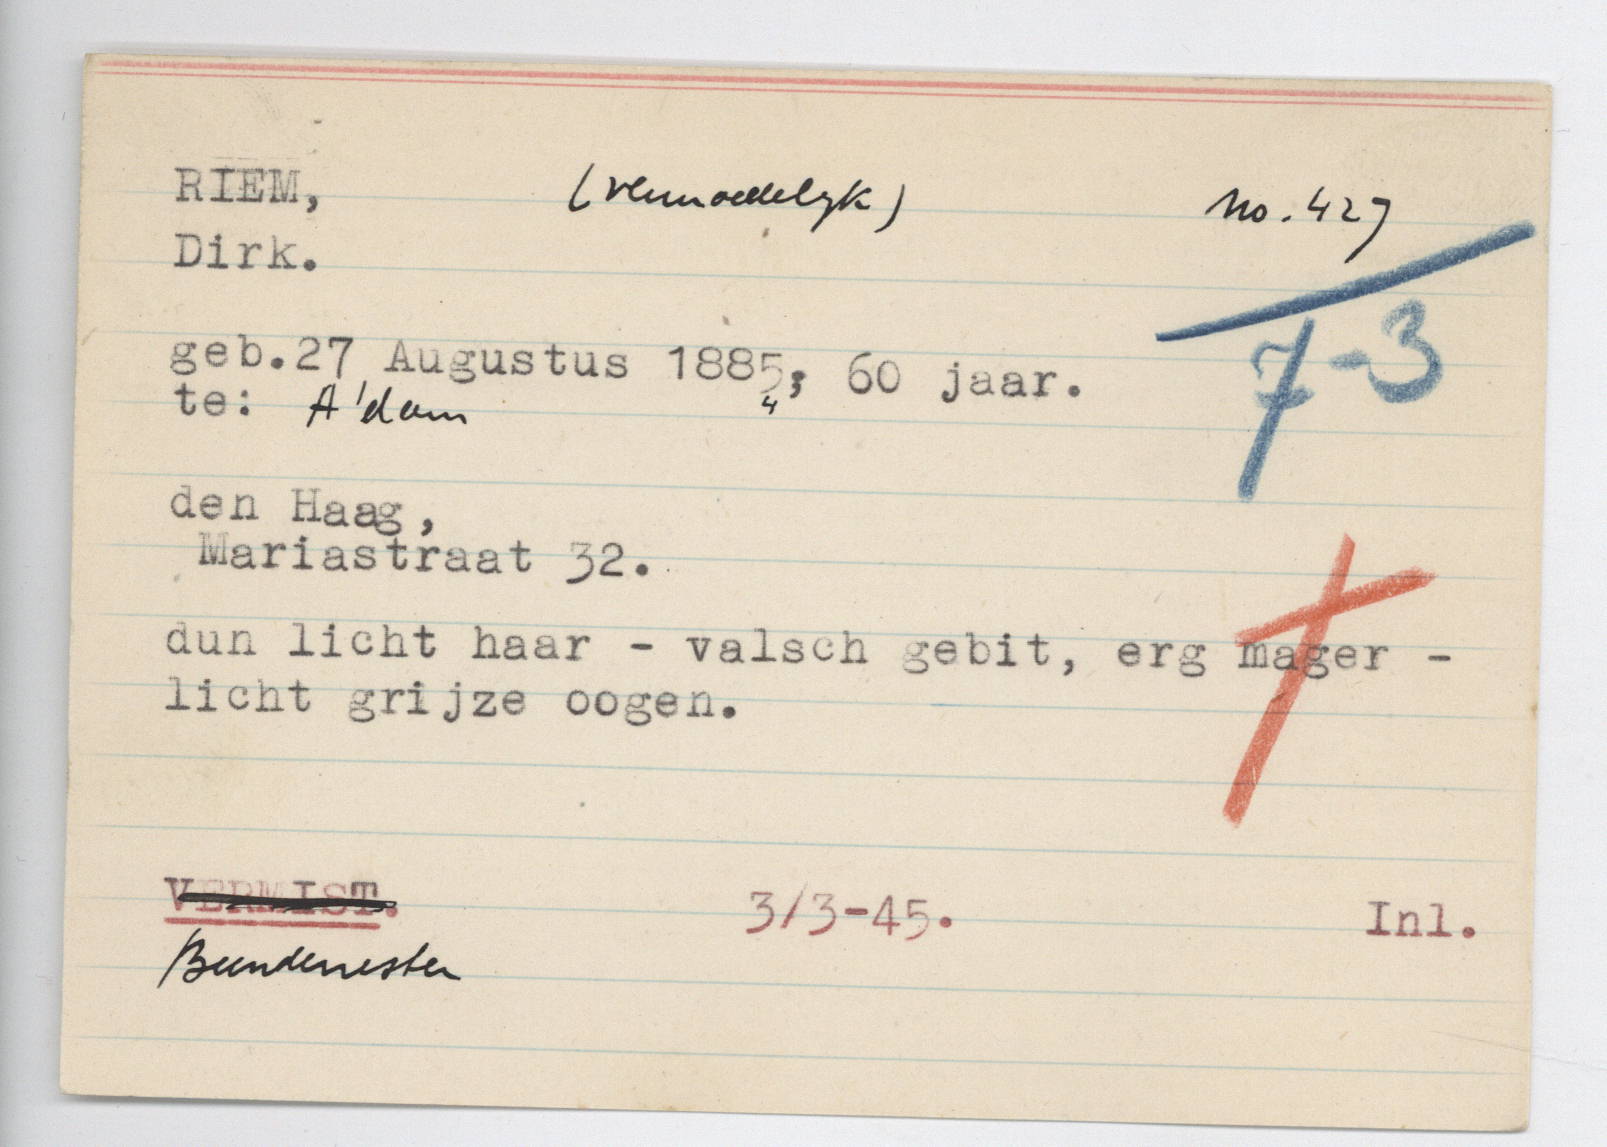 RIEM, (vermoedelijk) No. 427
Dirk.
7-3
geb.27 Augustus 1885; 60 jaar.
4
te: A'dam
den Haag,
Mariastraat 32.
dun licht haar - valsch gebit, erg mager -
licht grijze oogen.
VERMIST. 3/3-45. Inl.
Beenderresten